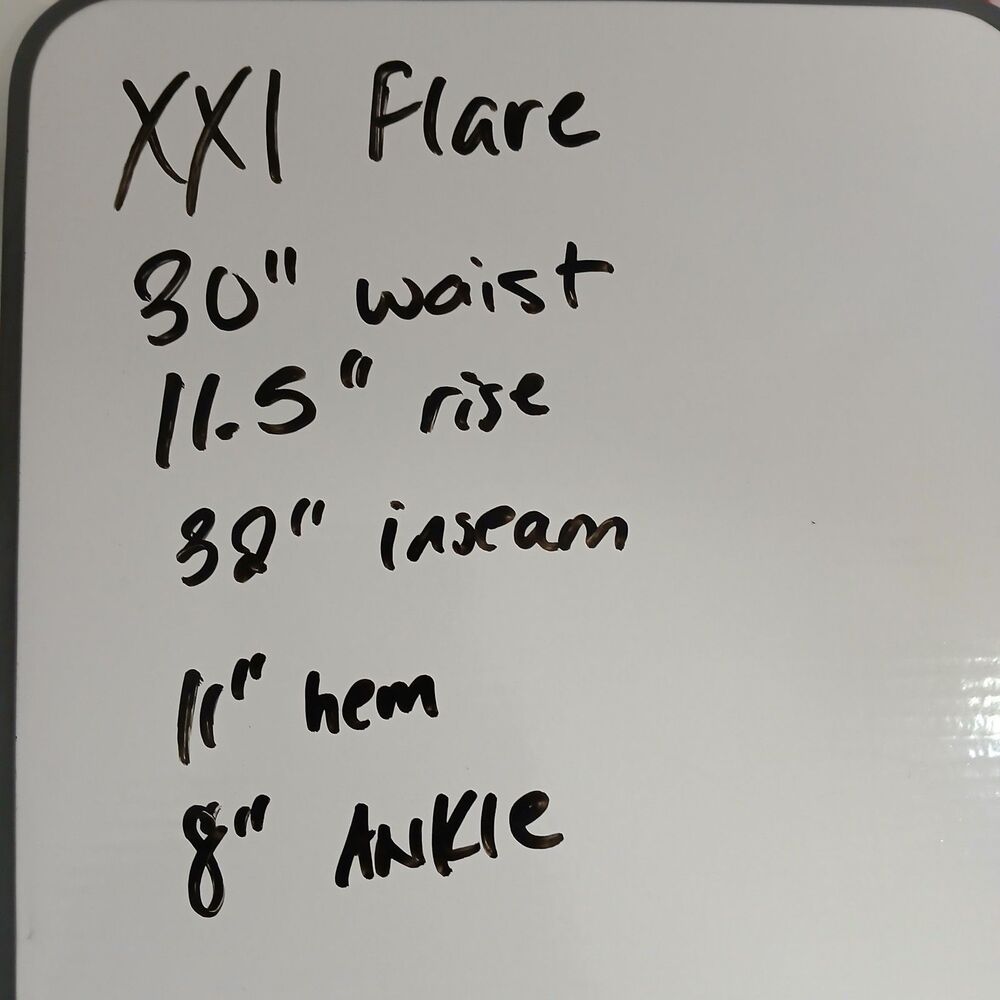 XXI Flare
30" waist
11.5" rise
32" inseam
11" hem
8" ANKle